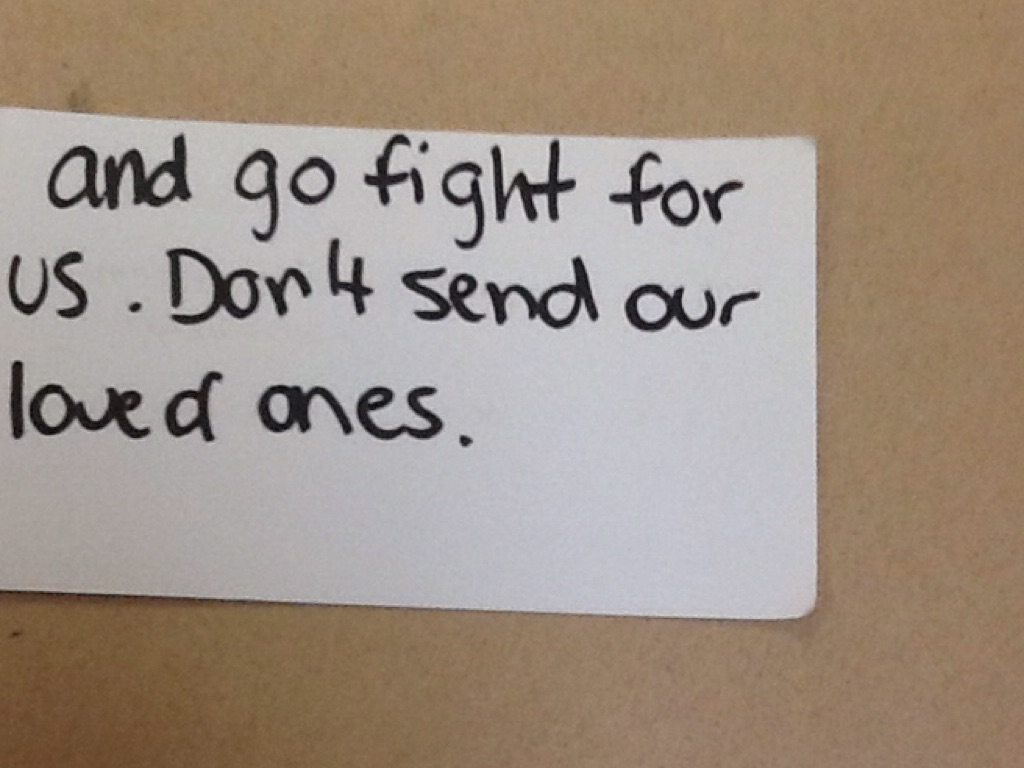 and go fight for
us. Don't send our
loved ones.